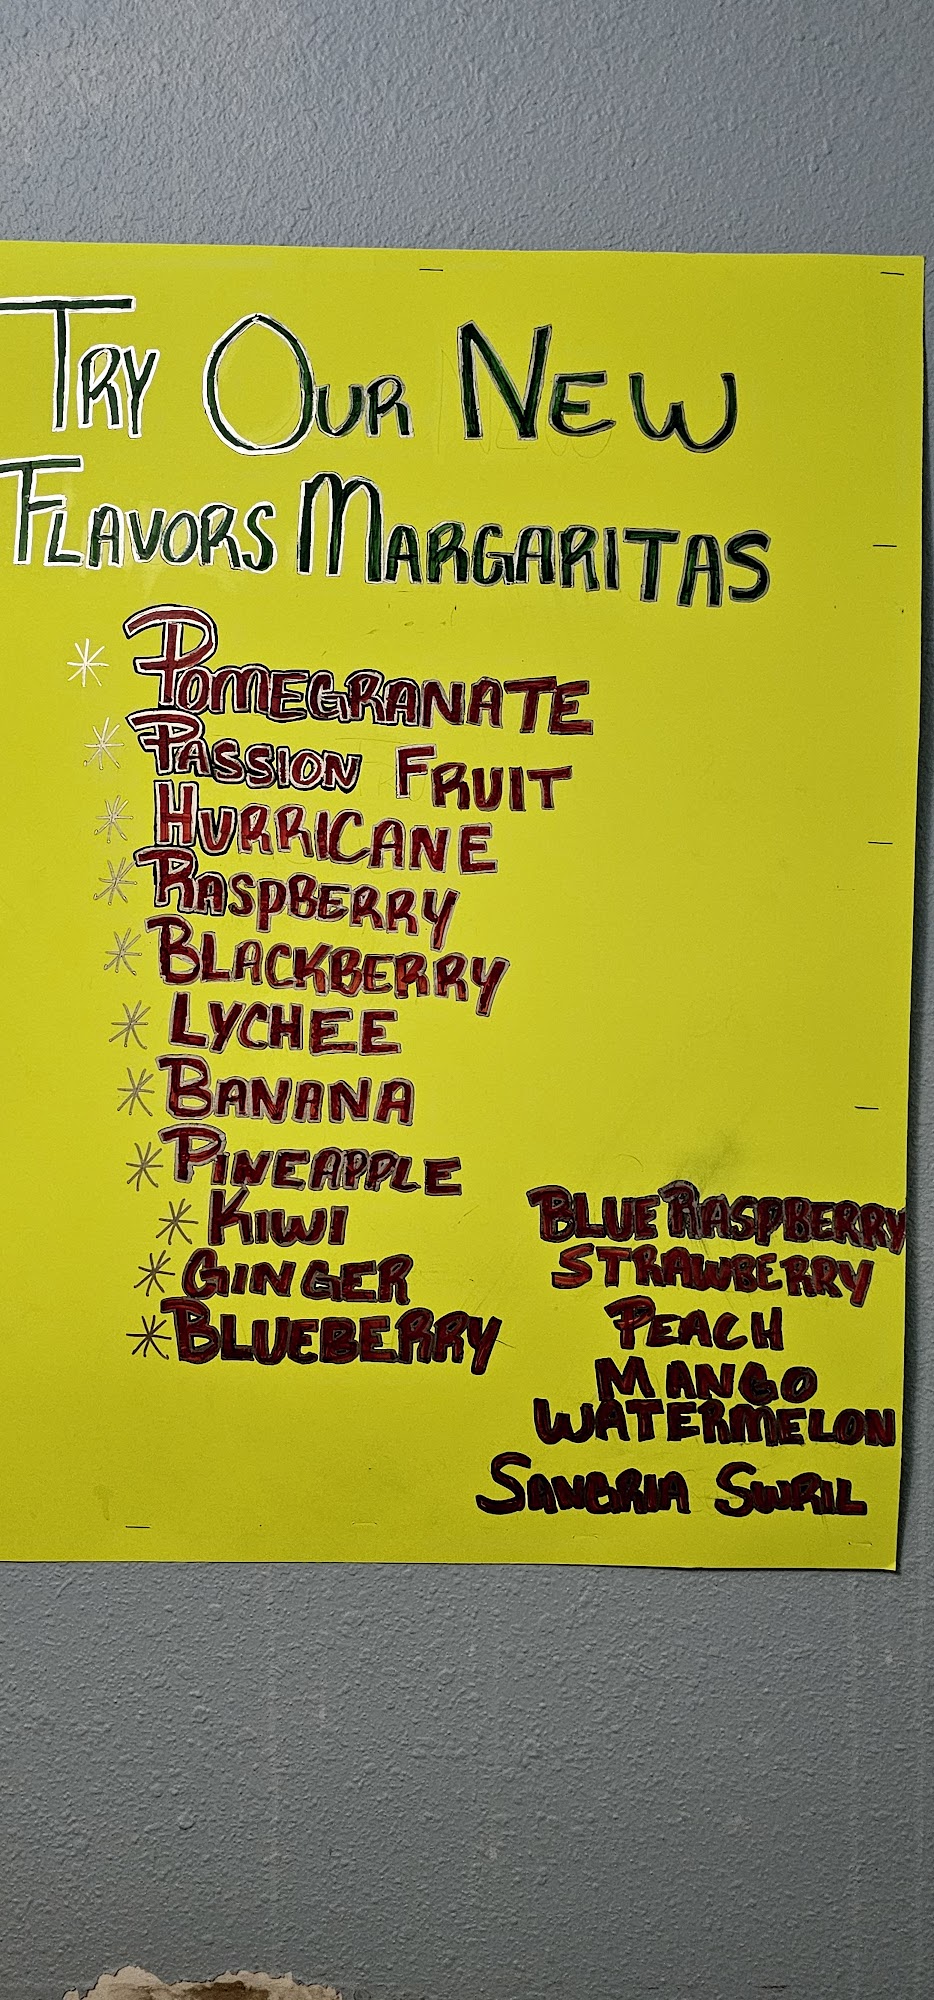 Try Our New
Flavors Margaritas
* Pomegranate
* Passion Fruit
* Hurricane
* Raspberry
* Blackberry
* Lychee
* Banana
* Pineapple
* Kiwi
* Ginger
* Blueberry
Blue Raspberry
Strawberry
Peach
Mango
Watermelon
Sangria Swril